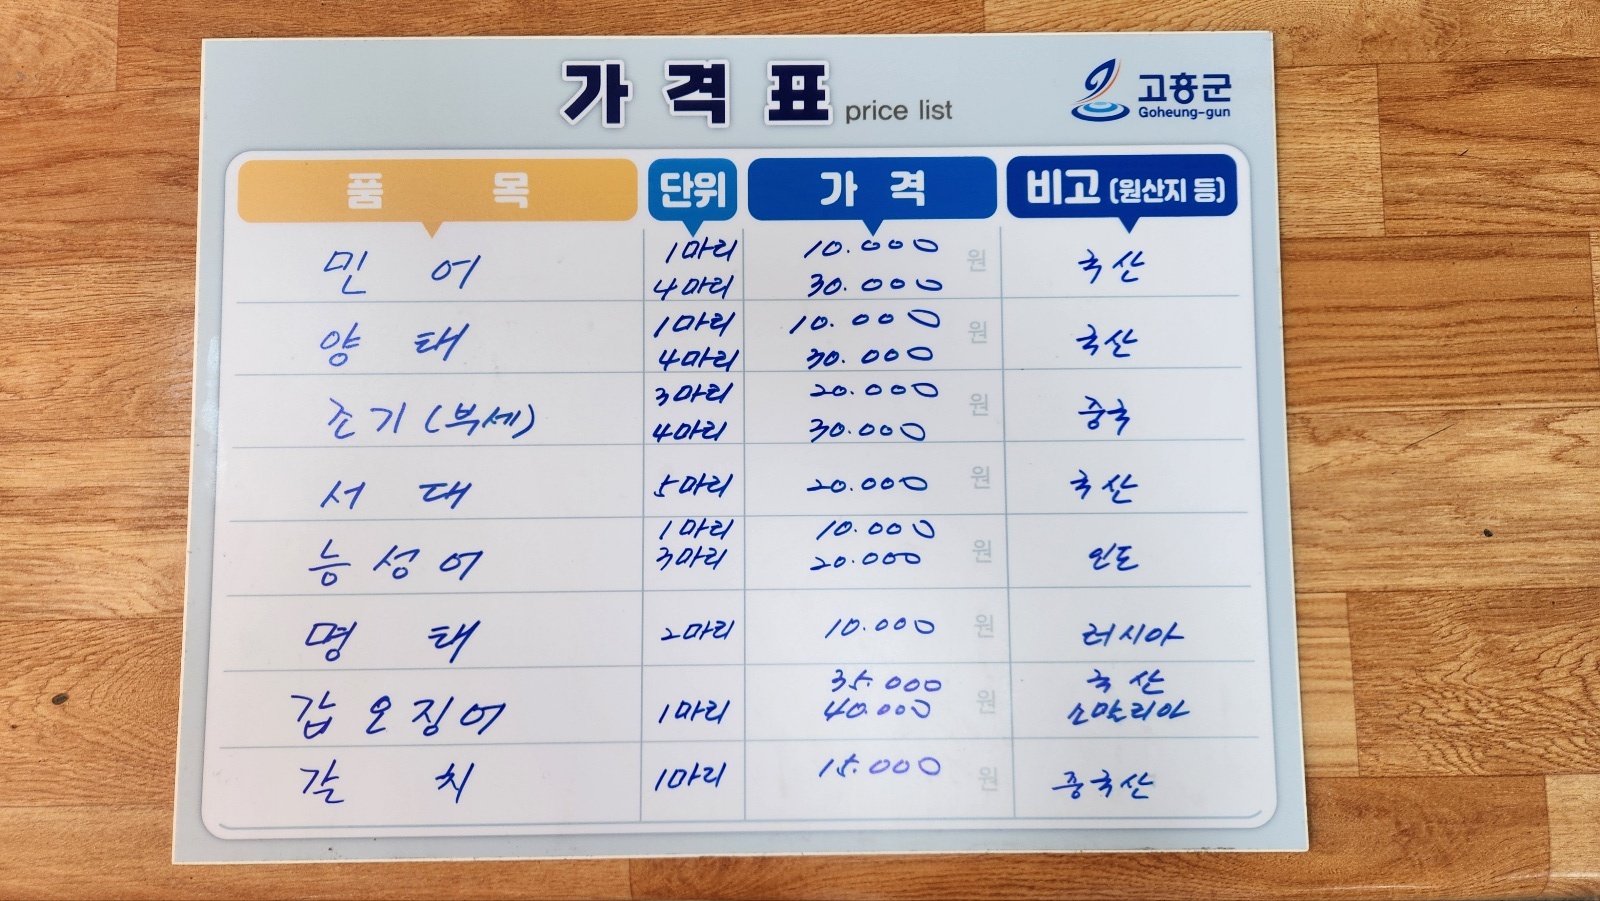 가격표 price list
고흥군
Goheung-gun
품목 단위 가격 비고 (원산지 등)
민어 1마리 10.000 원 국산
4마리 30.000
양태 1마리 10.000 원 국산
4마리 30.000
조기(부세) 3마리 20.000 원 중국
4마리 30.000
서대 5마리 20.000 원 국산
능성어 1마리 10.000 원 인도
3마리 20.000
명태 2마리 10.000 원 러시아
갑오징어 1마리 35.000 원 국산
40.000 소말리아
갈치 1마리 15.000 원 중국산